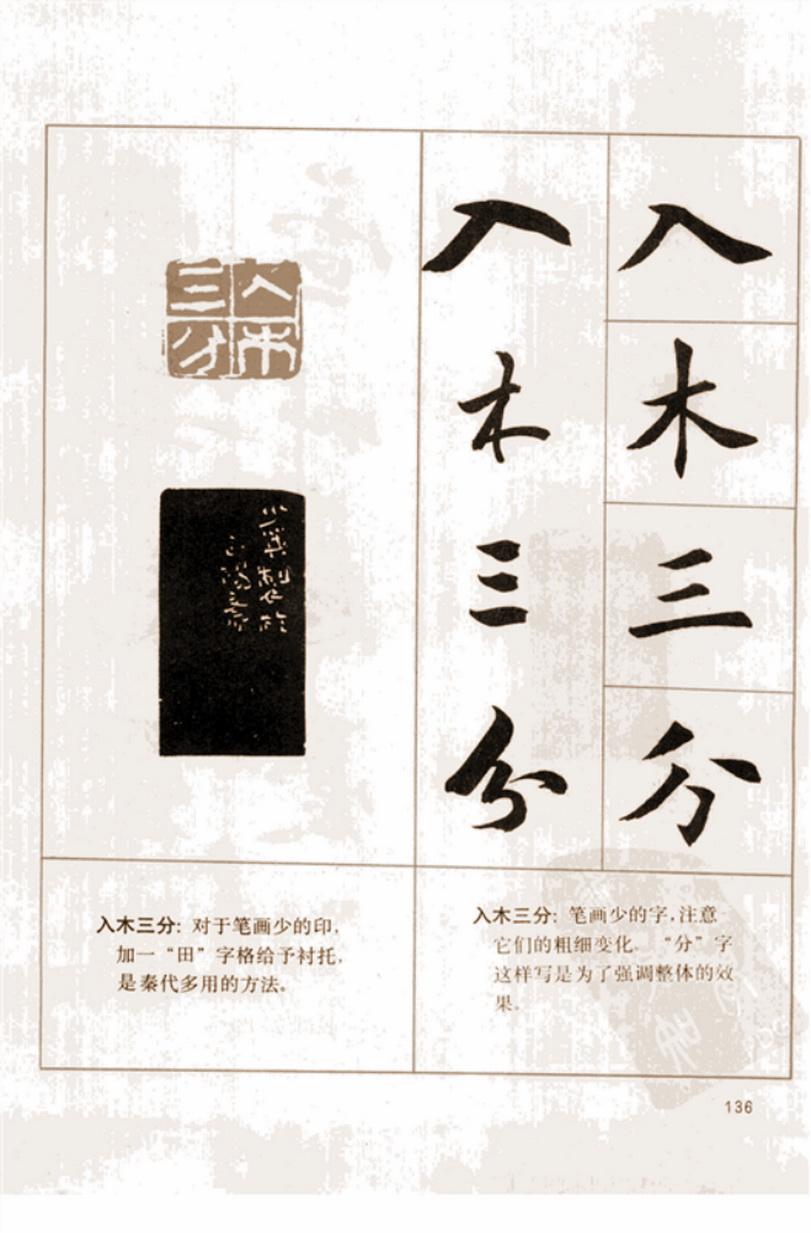 入木三分
入木三分
入木三分
入木三分：对于笔画少的印，
加一“田”字格给予衬托，
是秦代多用的方法。
入木三分：笔画少的字，注意
它们的粗细变化。“分”字
这样写是为了强调整体的效
果。
136